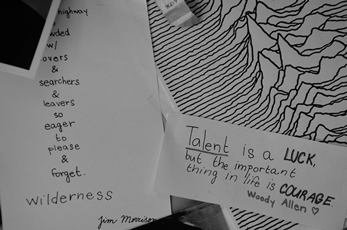 highway
w/
&
searchers
&
leavers
so
eager
to
please
&
forget.
Wilderness
Jim Morrison
Talent is a LUCK,
but the important
thing in life is COURAGE.
Woody Allen ♡